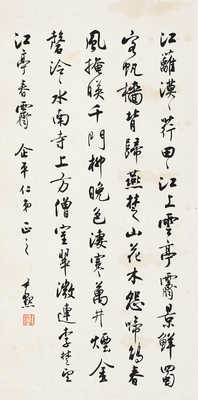 江蘺漠〻荇田〻江上雲亭霽景鮮蜀
客帆檣背歸燕楚山花木怨啼鵑春
風掩暎千門柳晚色淒寒萬井煙金
磬泠〻水南寺上方僧室翠微連李楚望
江亭春霽 企平仁弟正之
尹默